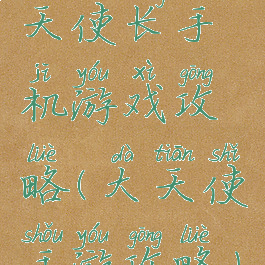 天使长手
jī yóu xì gōng
机游戏攻
lüè dà tiān shǐ
略(大天使
shǒu yóu gōng lüè
手游攻略)